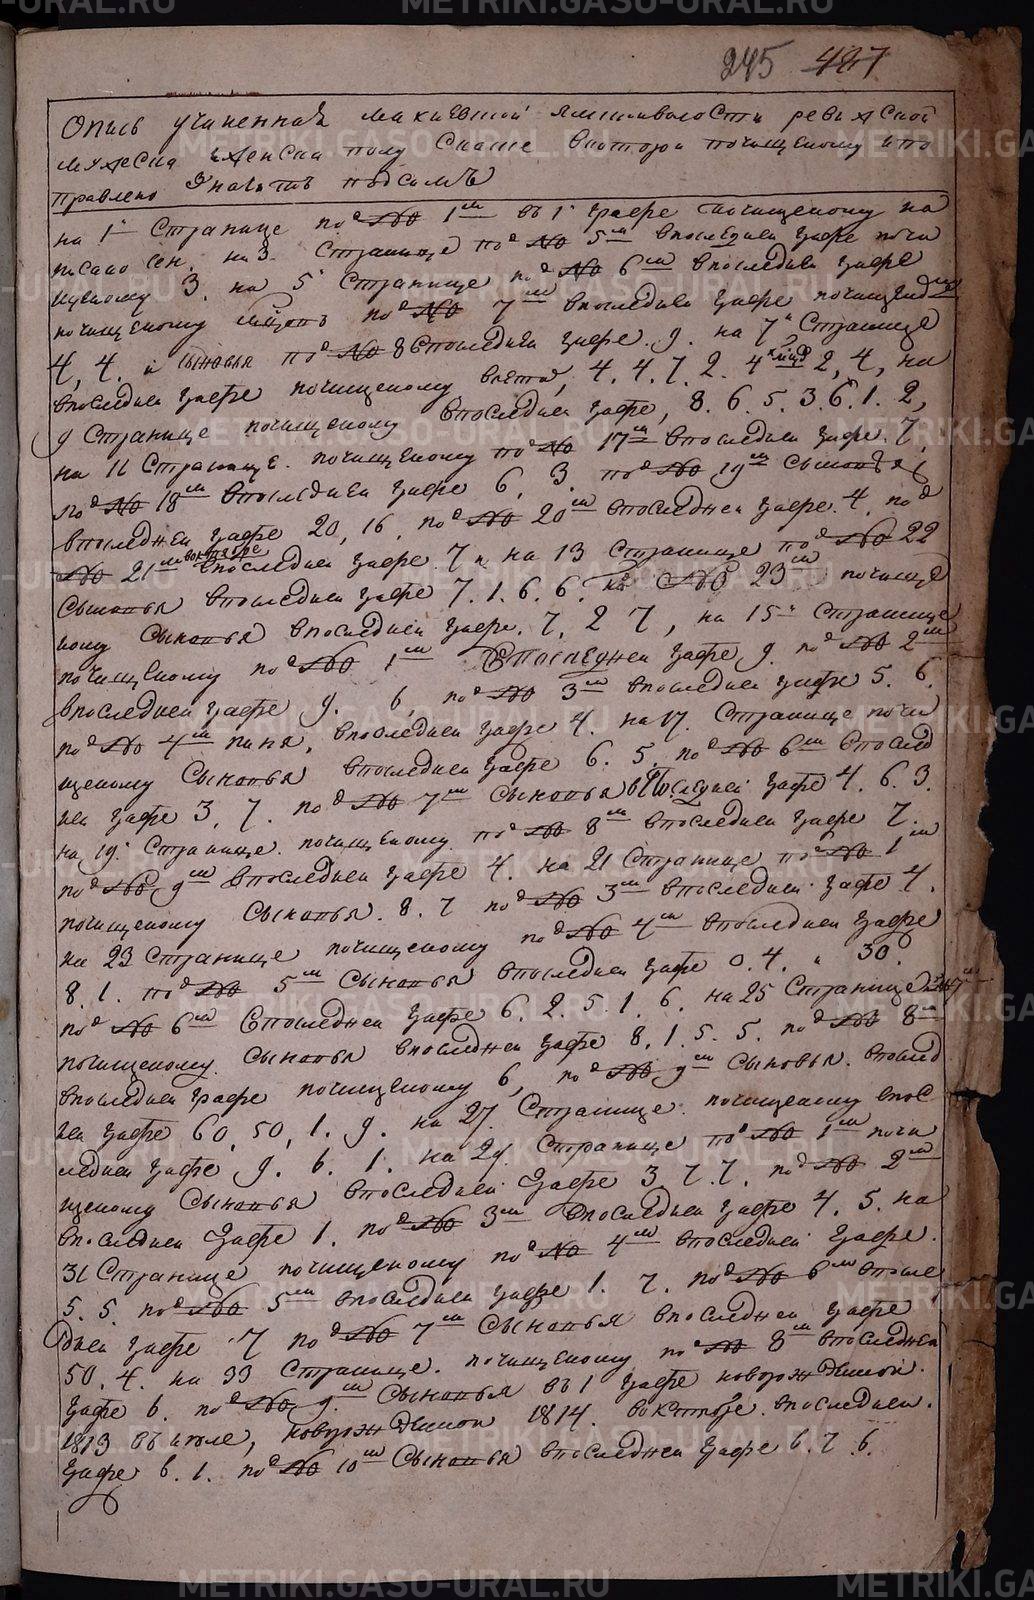 METRIKI.GASO-URAL.RU
245 487
Опись учиненная ревиской
мужеска женска полу почищеному и по
правлено значитъ подсимъ
на 1й Странице подъ № 1м въ 1 графе почищеному на
писано сен. на 3 Странице подъ № 5м впоследнеи графе почи
щеному 3. на 5 Странице подъ № 6м впоследнеи графе
почищеному подъ № 7м впоследнеи графе почищено
4, 4. и сыновья подъ № 8 впоследнеи графе 9. на 7й Странице
впоследнеи графе почищеному 4. 4. 7. 2. 4 2, 4, на
9 Странице почищеному впоследнеи графе, 8. 6. 5. 3. 6. 1. 2,
на 11 Странице. почищеному подъ № 17м впоследнеи графе. 7,
подъ № 18м впоследнеи графе 6, 3, подъ № 19м сыновья
впоследнеи графе 20, 16, подъ № 20м впоследнеи графе. 4, подъ
№ 21м впоследнеи графе. 7 и на 13 Странице подъ № 22
Сыновья впоследнеи графе 7. 1. 6. 6. № 23м почище
ному Сыновья впоследнеи графе. 7, 2 7, на 15й Странице
почищеному подъ № 1м впоследнеи графе 9. подъ № 2м
впоследнеи графе 9. 6, подъ № 3м впоследнеи графе 5. 6.
подъ № 4м впоследнеи графе 4. на 17. Странице почи
щеному Сыновья впоследнеи графе 6. 5. подъ № 6м впослед
неи графе 3, 7. подъ № 7м Сыновья впоследнеи графе 4. 6. 3.
на 19. Странице. почищеному. подъ № 8м впоследнеи графе 7.
подъ № 9м впоследнеи графе 4. на 21 Странице подъ № 1м
почищеному Сыновья. 8. 7 подъ № 3м впоследнеи графе 4.
на 23 Странице почищеному подъ № 4м впоследнеи графе
8. 1. подъ № 5м Сыновья впоследнеи графе 0. 4. " 30.
подъ № 6м впоследнеи графе 6. 2. 5. 1. 6. на 25 Странице
почищеному. Сыновья впоследнеи графе 8. 1. 5. 5. подъ № 8м
впоследнеи графе почищеному 6, подъ № 9м Сыновья. впослед
неи графе 60, 50, 1. 9. на 27. Странице. почищеному впос
леднеи графе 9. 6. 1. на 29. Странице подъ № 1м почи
щеному Сыновья впоследнеи графе 3. 7. 7. подъ № 2м
впоследнеи графе 1. подъ № 3м впоследнеи графе 4. 5. на
31 Странице почищеному подъ № 4м впоследнеи графе.
5. 5. подъ № 5м впоследнеи графе 1. 7. подъ № 6м впосле
днеи графе 7 подъ № 7м Сыновья впоследнеи графе
50. 4. на 33 Странице. почищеному подъ № 8м впоследнеи
графе 6. подъ № 9м Сыновья въ 1 графе новорожденнои.
1813 въ июле, новорожденнои 1814. воктябре. впоследнеи.
графе 6. 1. подъ № 10м Сыновья впоследнеи графе 6. 7 6.